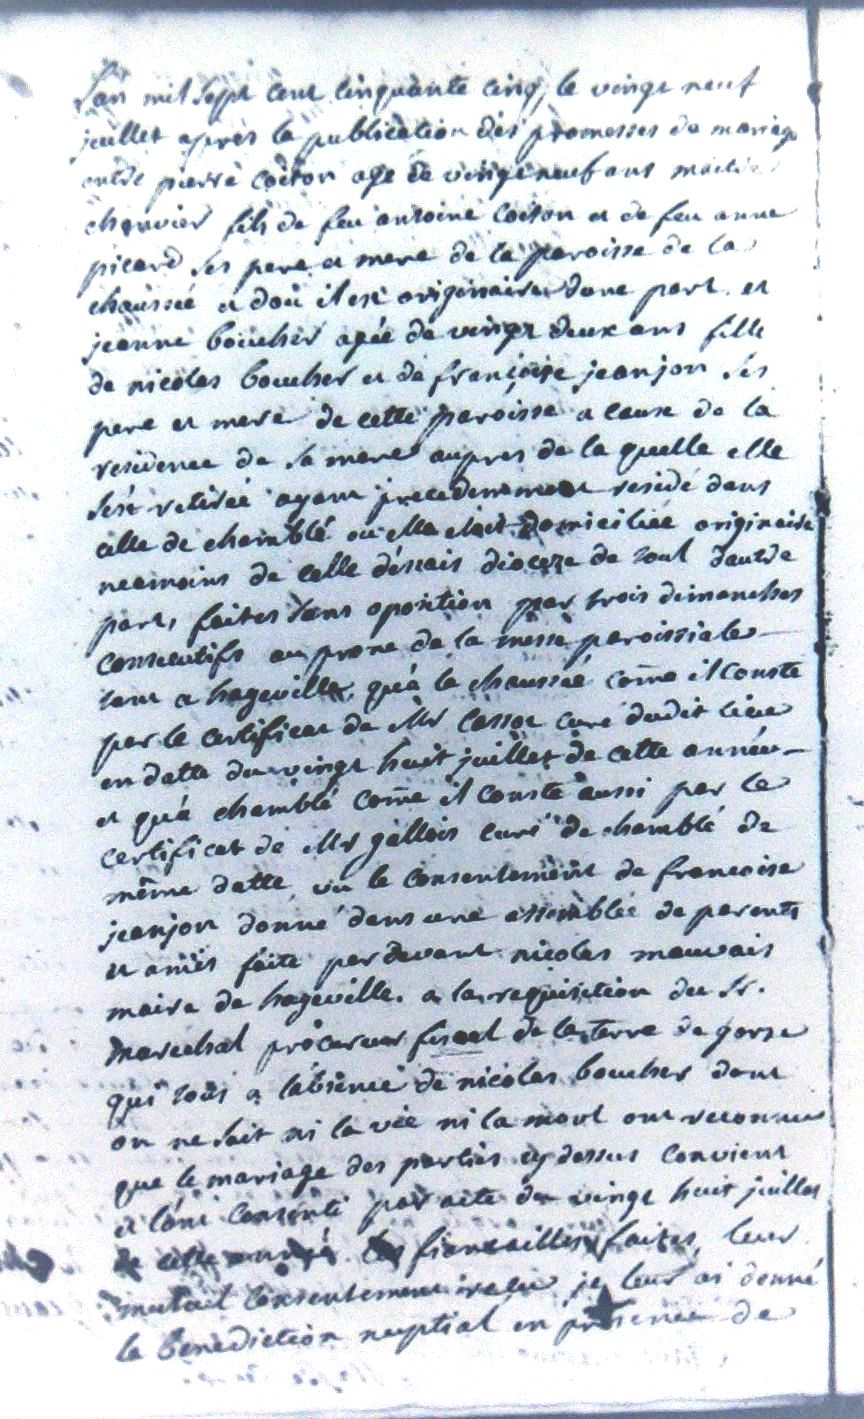 L'an mil sept cent cinquante cinq, le vingt neuf
juillet apres la publication des promesses de mariage
entre pierre coeton agé de vingt neuf ans maitre
chanvier fils de feu antoine coeton et de feu anne
picard ses pere et mere de la paroisse de la
chaussée et doù il est originaire dune part. et
jeanne boucher agée de vingt deux ans fille
de nicolas boucher et de françoise jeanjon ses
pere et mere de cette paroisse a cause de la
residence de sa mere aupres de la quelle elle
s'est retirée ayant precedemment residé dans
celle de chamblé ou elle etoit domiciliée originaire
neamoins de celle dessais dioceze de toul d'autre
part, faites sans oposition par trois dimanches
consecutifs au prone de la messe paroissiale
tant a hageville, qu'à la chaussée come il conste
par le certificat de Mr cassot curé dudit lieu
en datte du vingt huit juillet de cette année
et qu'à chamblé come il conste aussi par le
certificat de Mr gallois curé de chamblé de
même datte, vu le consentement de francoise
jeanjon donné dans une assemblée de parents
et amis faite pardevant nicolas mauvais
maire de hageville. a la requisition du Sr.
marechal procureur fiscal de la terre de gorze
qui tous a l'absence de nicolas boucher dont
on ne sait ni la vie ni la mort ont reconnu
que le mariage des parties cy dessus convient
et l'ont consenti par acte du vingt huit juillet
de cette année les fiancailles faites, leur
mutuel consentement recu je leur ai donné
la benediction nuptial en presence de